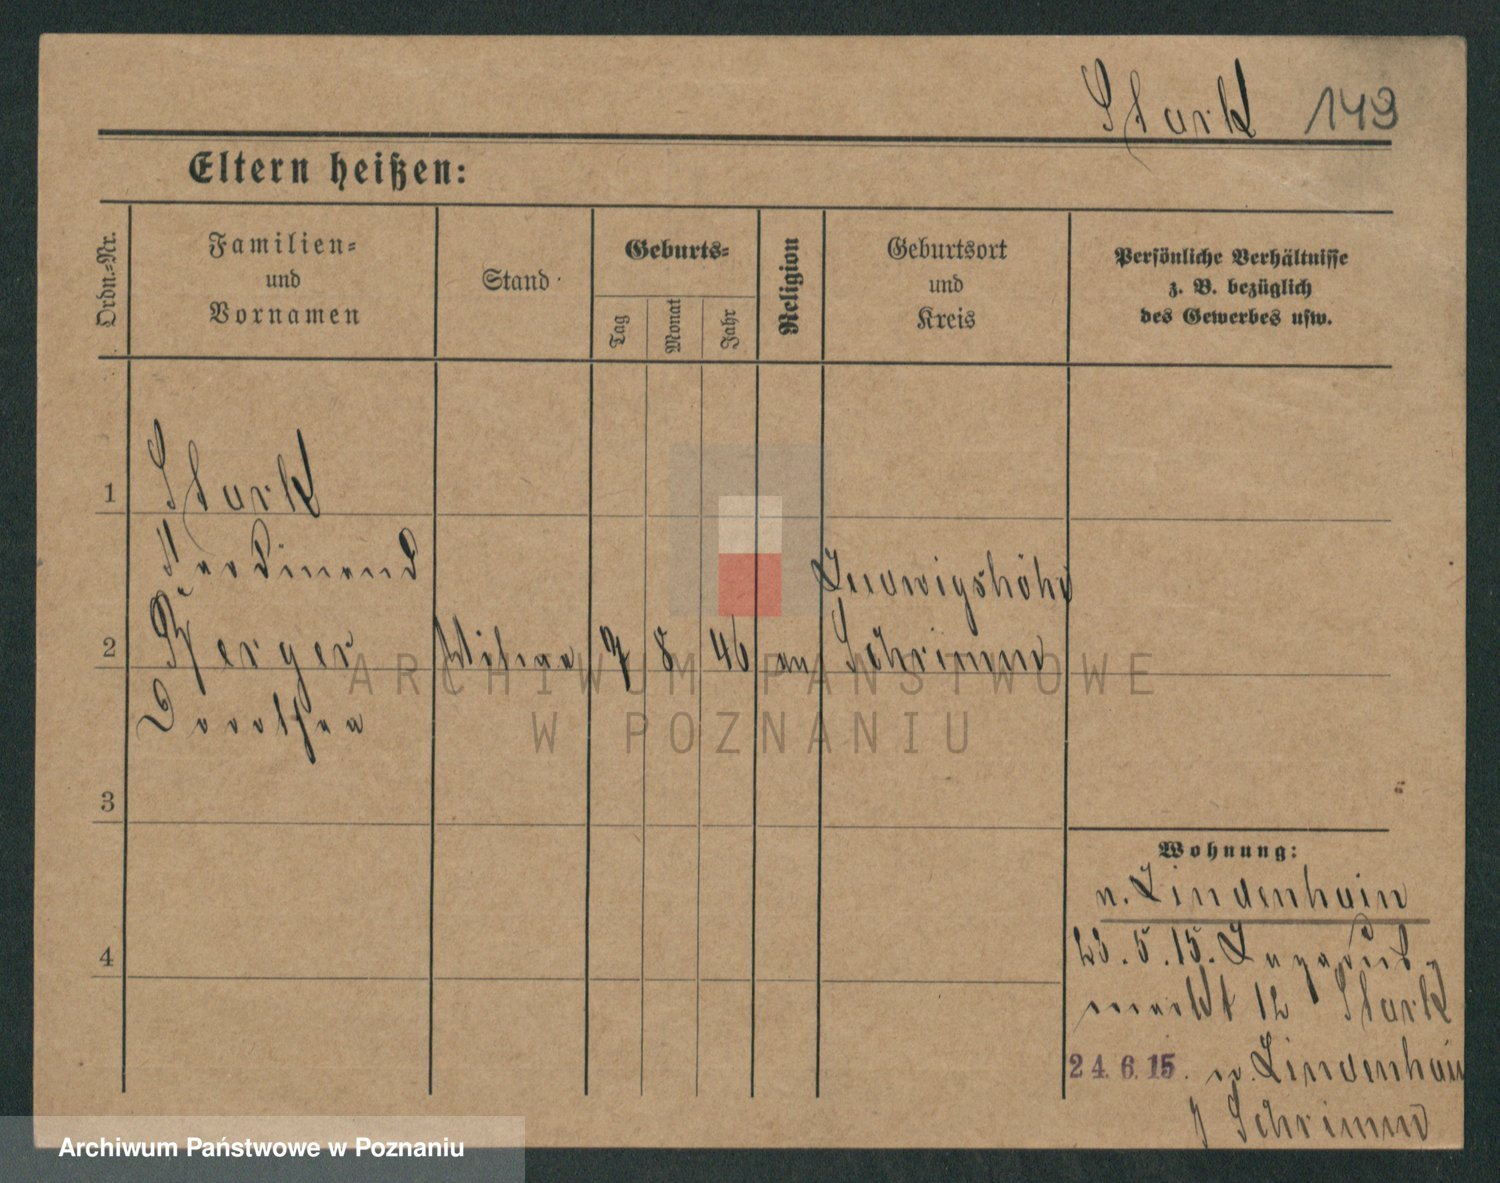 Stark 149
Eltern heißen:
Ordn.-Nr.
Familien=
und
Vornamen
Stand
Geburts=
Tag
Monat
Jahr
Religion
Geburtsort
und
Kreis
Persönliche Verhältnisse
z. B. bezüglich
des Gewerbes usw.
1 Stark
Ferdinand
Ludwigshöhe
2 Berger Witwe 7 8 46 ev Schrimm
Dorothea
3
4
Wohnung:
n. Lindenhain
23.5.15.
markt 12 Stark
24.6.15. n. Lindenhain
Schrimm
ARCHIWUM PAŃSTWOWE
W POZNANIU
Archiwum Państwowe w Poznaniu